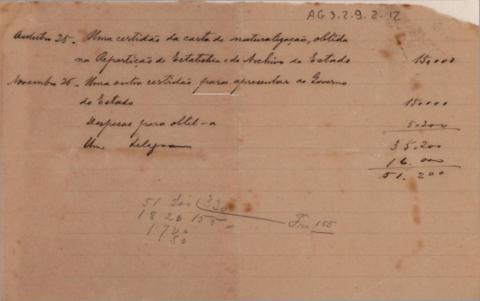 AG 3.2.9.2-12
Outubro 25 - Uma certidão da carta de naturalização, obtida
na Repartição de Estatistica e do Archivo do Estado 15.000
Novembro 26 - Uma outra certidão para apresentar ao Governo
do Estado 15.000
Despezas para obtel-a 5.200
35.200
Um telegramma 16.000
51.200
51
1820 155 Frs 155
1700
50